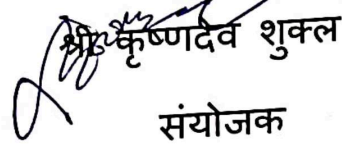 श्री कृष्णदेव शुक्ल
संयोजक